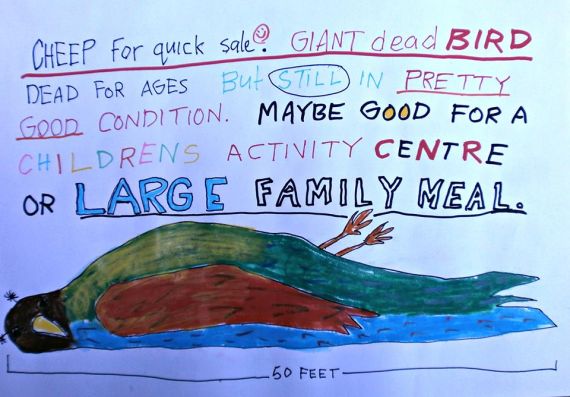 CHEEP For quick sale! GIANT dead BIRD
DEAD FOR AGES But STILL IN PRETTY
GOOD CONDITION. MAYBE GOOD FOR A
CHILDRENS ACTIVITY CENTRE
OR LARGE FAMILY MEAL.
50 FEET